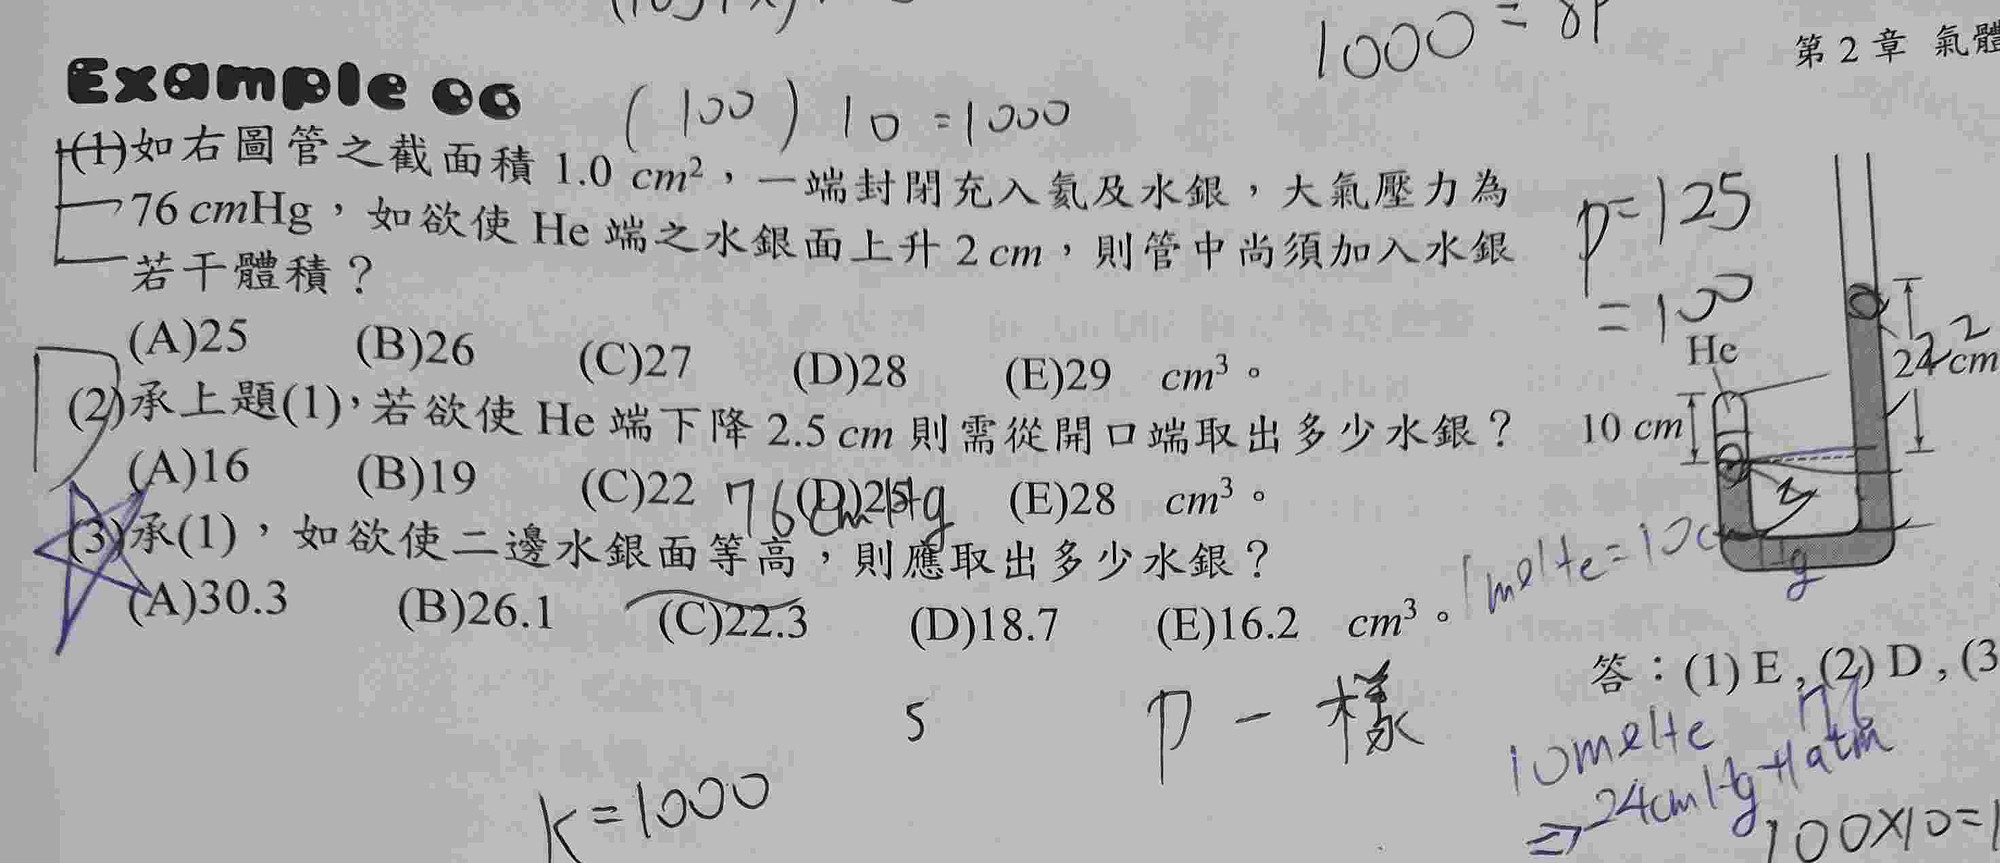 1000 = 8P
第 2 章 氣體
Example 06
(100) 10 = 1000
(1)如右圖管之截面積 1.0 cm²,一端封閉充入氦及水銀,大氣壓力為
76 cmHg,如欲使 He 端之水銀面上升 2 cm,則管中尚須加入水銀
若干體積?
(A)25 (B)26 (C)27 (D)28 (E)29 cm³。
(2)承上題(1),若欲使 He 端下降 2.5 cm 則需從開口端取出多少水銀?
(A)16 (B)19 (C)22 (D)25 (E)28 cm³。
76cmHg
(3)承(1),如欲使二邊水銀面等高,則應取出多少水銀?
(A)30.3 (B)26.1 (C)22.3 (D)18.7 (E)16.2 cm³。
P=125
=100
He
2
24 cm
10 cm
Hg
答:(1) E , (2) D , (3
5
P一樣
76
24cmHg+1atm
K=1000
100×10=1